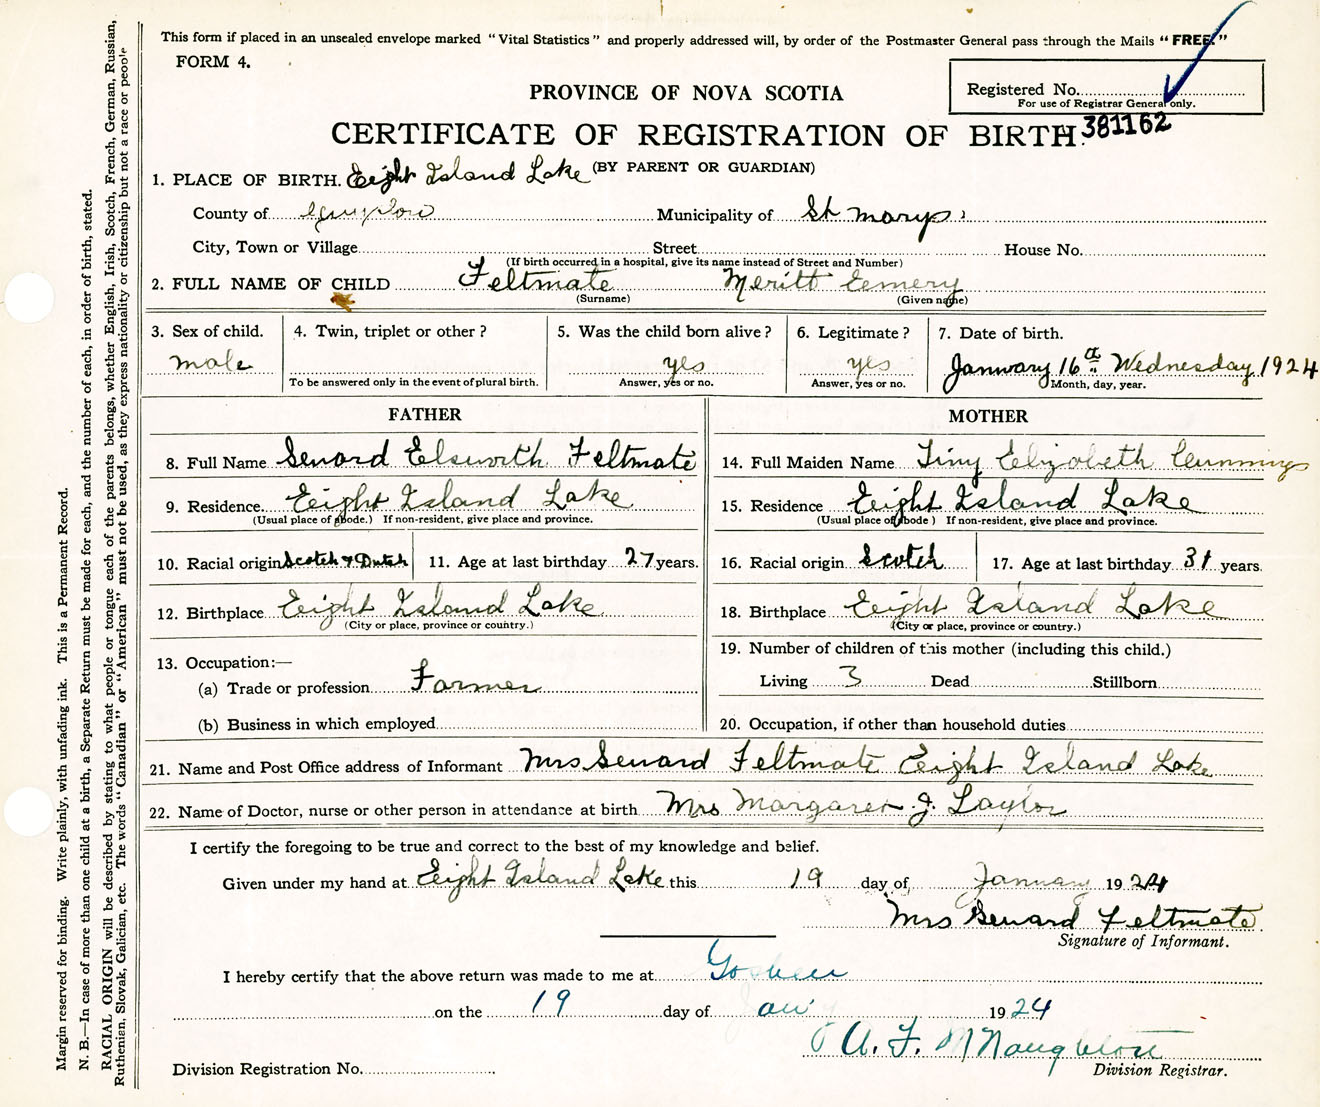 This form if placed in an unsealed envelope marked "Vital Statistics" and properly addressed will, by order of the Postmaster General pass through the Mails "FREE."
FORM 4.
Registered No.
For use of Registrar General only.
PROVINCE OF NOVA SCOTIA
CERTIFICATE OF REGISTRATION OF BIRTH. 381162
(BY PARENT OR GUARDIAN)
1. PLACE OF BIRTH. Eeight Island Lake
County of Municipality of St Marys
City, Town or Village Street House No.
(If birth occurred in a hospital, give its name instead of Street and Number)
2. FULL NAME OF CHILD Feltmate Meritt Eemery
(Surname) (Given name)
3. Sex of child. 4. Twin, triplet or other? 5. Was the child born alive? 6. Legitimate? 7. Date of birth.
male yes yes January 16th Wednesday 1924
To be answered only in the event of plural birth. Answer, yes or no. Answer, yes or no. Month, day, year.
FATHER
8. Full Name Seward Elsworth Feltmate
9. Residence. Eeight Island Lake
(Usual place of abode.) If non-resident, give place and province.
10. Racial origin Scotch & Dutch 11. Age at last birthday 27 years.
12. Birthplace Eeight Island Lake
(City or place, province or country.)
13. Occupation:—
(a) Trade or profession Farmer
(b) Business in which employed
MOTHER
14. Full Maiden Name Tiny Elizabeth Cummings
15. Residence Eeight Island Lake
(Usual place of abode) If non-resident, give place and province.
16. Racial origin Scotch 17. Age at last birthday 31 years.
18. Birthplace Eeight Island Lake
(City or place, province or country.)
19. Number of children of this mother (including this child.)
Living 3 Dead Stillborn
20. Occupation, if other than household duties
21. Name and Post Office address of Informant Mrs Seward Feltmate Eeight Island Lake
22. Name of Doctor, nurse or other person in attendance at birth Mrs Margaret J. Taylor
I certify the foregoing to be true and correct to the best of my knowledge and belief.
Given under my hand at Eeight Island Lake this 19 day of January 1924
Mrs Seward Feltmate
Signature of Informant.
I hereby certify that the above return was made to me at Goshen
on the 19 day of Jan'y 1924
A. F. McNaughton
Division Registration No. Division Registrar.
Margin reserved for binding. Write plainly, with unfading ink. This is a Permanent Record.
N. B.—In case of more than one child at a birth, a Separate Return must be made for each, and the number of each, in order of birth, stated.
RACIAL ORIGIN will be described by stating to what people or tongue each of the parents belongs, whether English, Irish, Scotch, French, German, Russian,
Ruthenian, Slovak, Galician, etc. The words "Canadian" or "American" must not be used, as they express nationality or citizenship but not a race or people